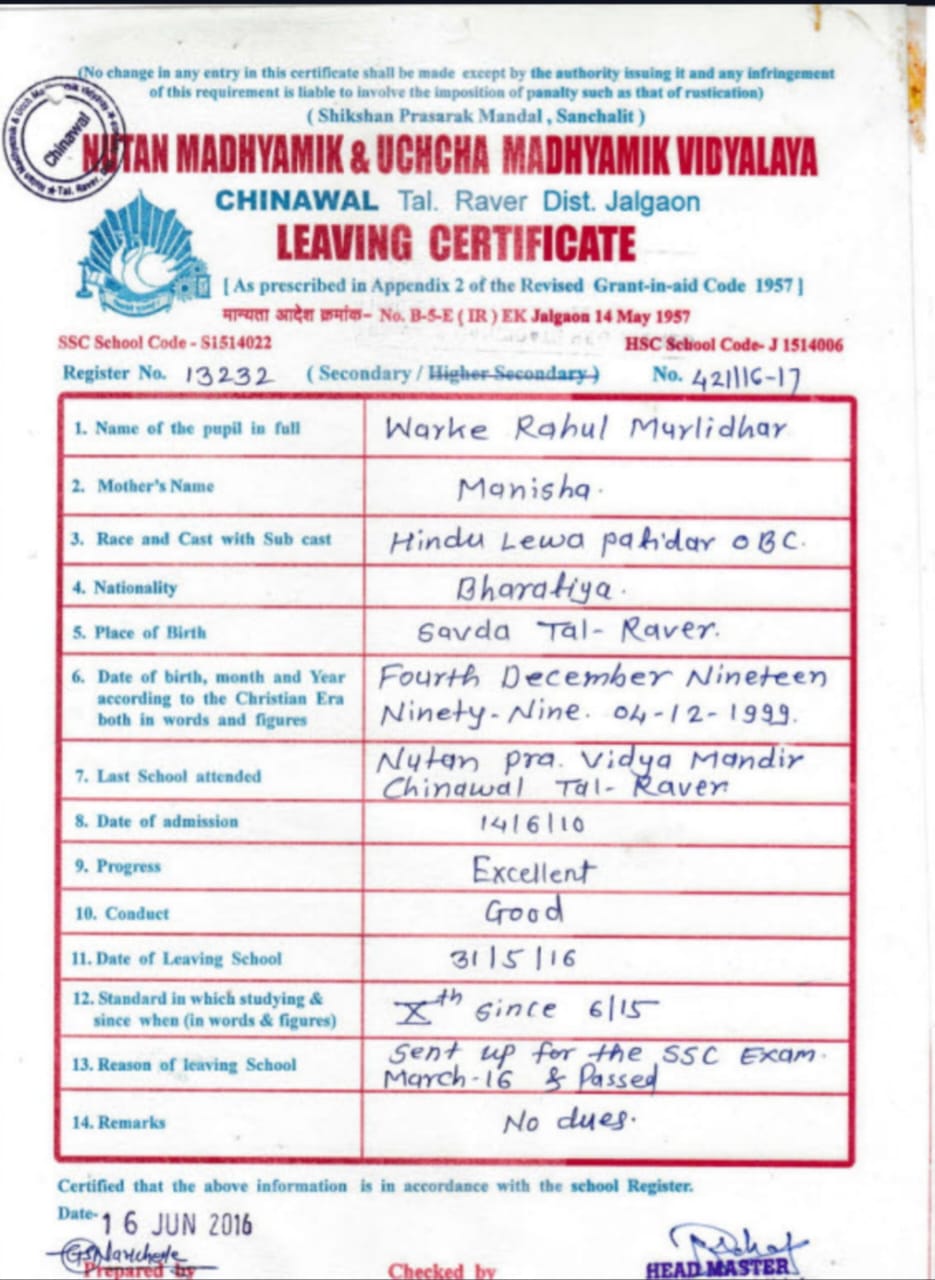 (No change in any entry in this certificate shall be made except by the authority issuing it and any infringement
of this requirement is liable to involve the imposition of panalty such as that of rustication)
( Shikshan Prasarak Mandal , Sanchalit )
NUTAN MADHYAMIK & UCHCHA MADHYAMIK VIDYALAYA
Chinawal
CHINAWAL Tal. Raver Dist. Jalgaon
LEAVING CERTIFICATE
[ As prescribed in Appendix 2 of the Revised Grant-in-aid Code 1957 ]
मान्यता आदेश क्रमांक– No. B-5-E ( IR ) EK Jalgaon 14 May 1957
SSC School Code - S1514022 HSC School Code- J 1514006
Register No. 13232 ( Secondary / Higher Secondary ) No. 421/16-17
1. Name of the pupil in full Warke Rahul Murlidhar
2. Mother's Name Manisha.
3. Race and Cast with Sub cast Hindu Lewa patidar OBC.
4. Nationality Bharatiya.
5. Place of Birth Savda Tal- Raver.
6. Date of birth, month and Year Fourth December Nineteen
according to the Christian Era
both in words and figures Ninety-Nine. 04-12-1999.
7. Last School attended Nutan pra. Vidya Mandir
Chinawal Tal- Raver
8. Date of admission 14/6/10
9. Progress Excellent
10. Conduct Good
11. Date of Leaving School 31/5/16
12. Standard in which studying & Xth since 6/15
since when (in words & figures)
13. Reason of leaving School Sent up for the SSC Exam.
March-16 & Passed
14. Remarks No dues.
Certified that the above information is in accordance with the school Register.
Date- 16 JUN 2016
Prepared by Checked by HEAD MASTER